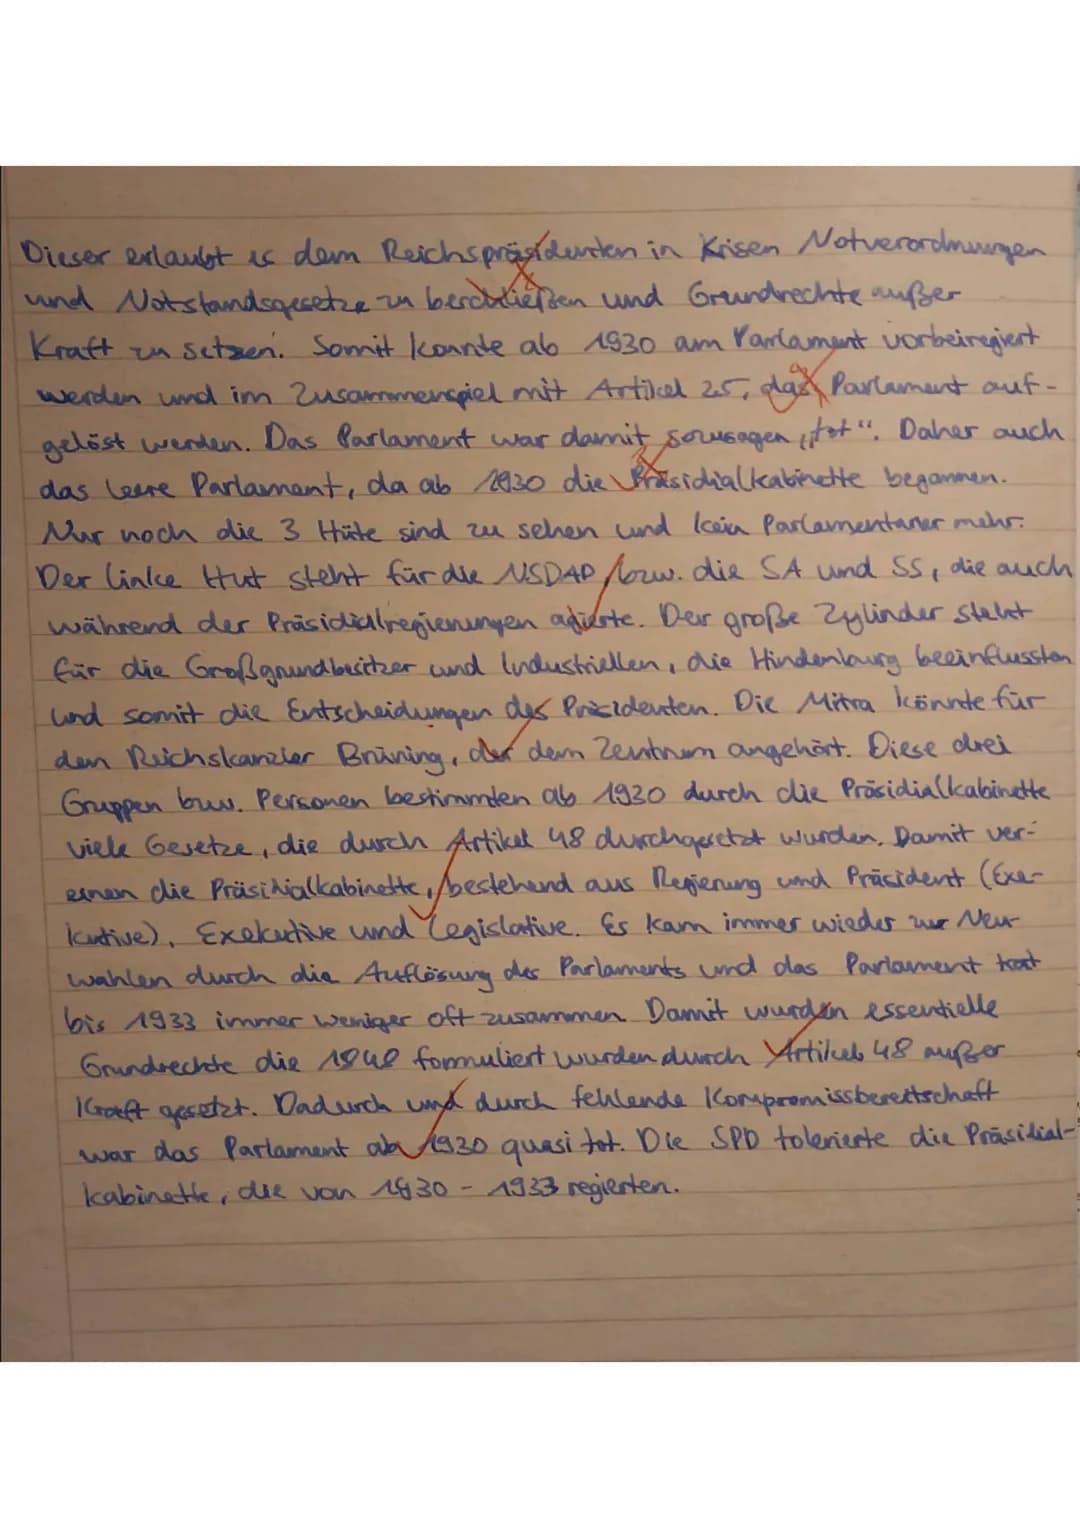 Dieser erlaubt es dem Reichspräsidenten in Krisen Notverordnungen
und Notstandsgesetze zu beschließen und Grundrechte außer
Kraft zu setzen. Somit konnte ab 1930 am Parlament vorbeiregiert
werden und im Zusammenspiel mit Artikel 25, das Parlament auf-
gelöst werden. Das Parlament war damit sozusagen „tot“. Daher auch
das leere Parlament, da ab 1930 die Präsidialkabinette begannen.
Nur noch die 3 Hüte sind zu sehen und kein Parlamentarier mehr.
Der linke Hut steht für die NSDAP, bzw. die SA und SS, die auch
während der Präsidialregierungen agierte. Der große Zylinder steht
für die Großgrundbesitzer und Industriellen, die Hindenburg beeinflussten
und somit die Entscheidungen des Präsidenten. Die Mitra könnte für
den Reichskanzler Brüning, der dem Zentrum angehört. Diese drei
Gruppen bzw. Personen bestimmten ab 1930 durch die Präsidialkabinette
viele Gesetze, die durch Artikel 48 durchgesetzt wurden. Damit ver-
einen die Präsidialkabinette, bestehend aus Regierung und Präsident (Exe-
kutive), Exekutive und Legislative. Es kam immer wieder zur Neu-
wahlen durch die Auflösung des Parlaments und das Parlament trat
bis 1933 immer weniger oft zusammen. Damit wurden essentielle
Grundrechte die 1848 formuliert wurden durch Artikel 48 außer
Kraft gesetzt. Dadurch und durch fehlende Kompromissbereitschaft
war das Parlament ab 1930 quasi tot. Die SPD tolerierte die Präsidial-
kabinette, die von 1930 - 1933 regierten.